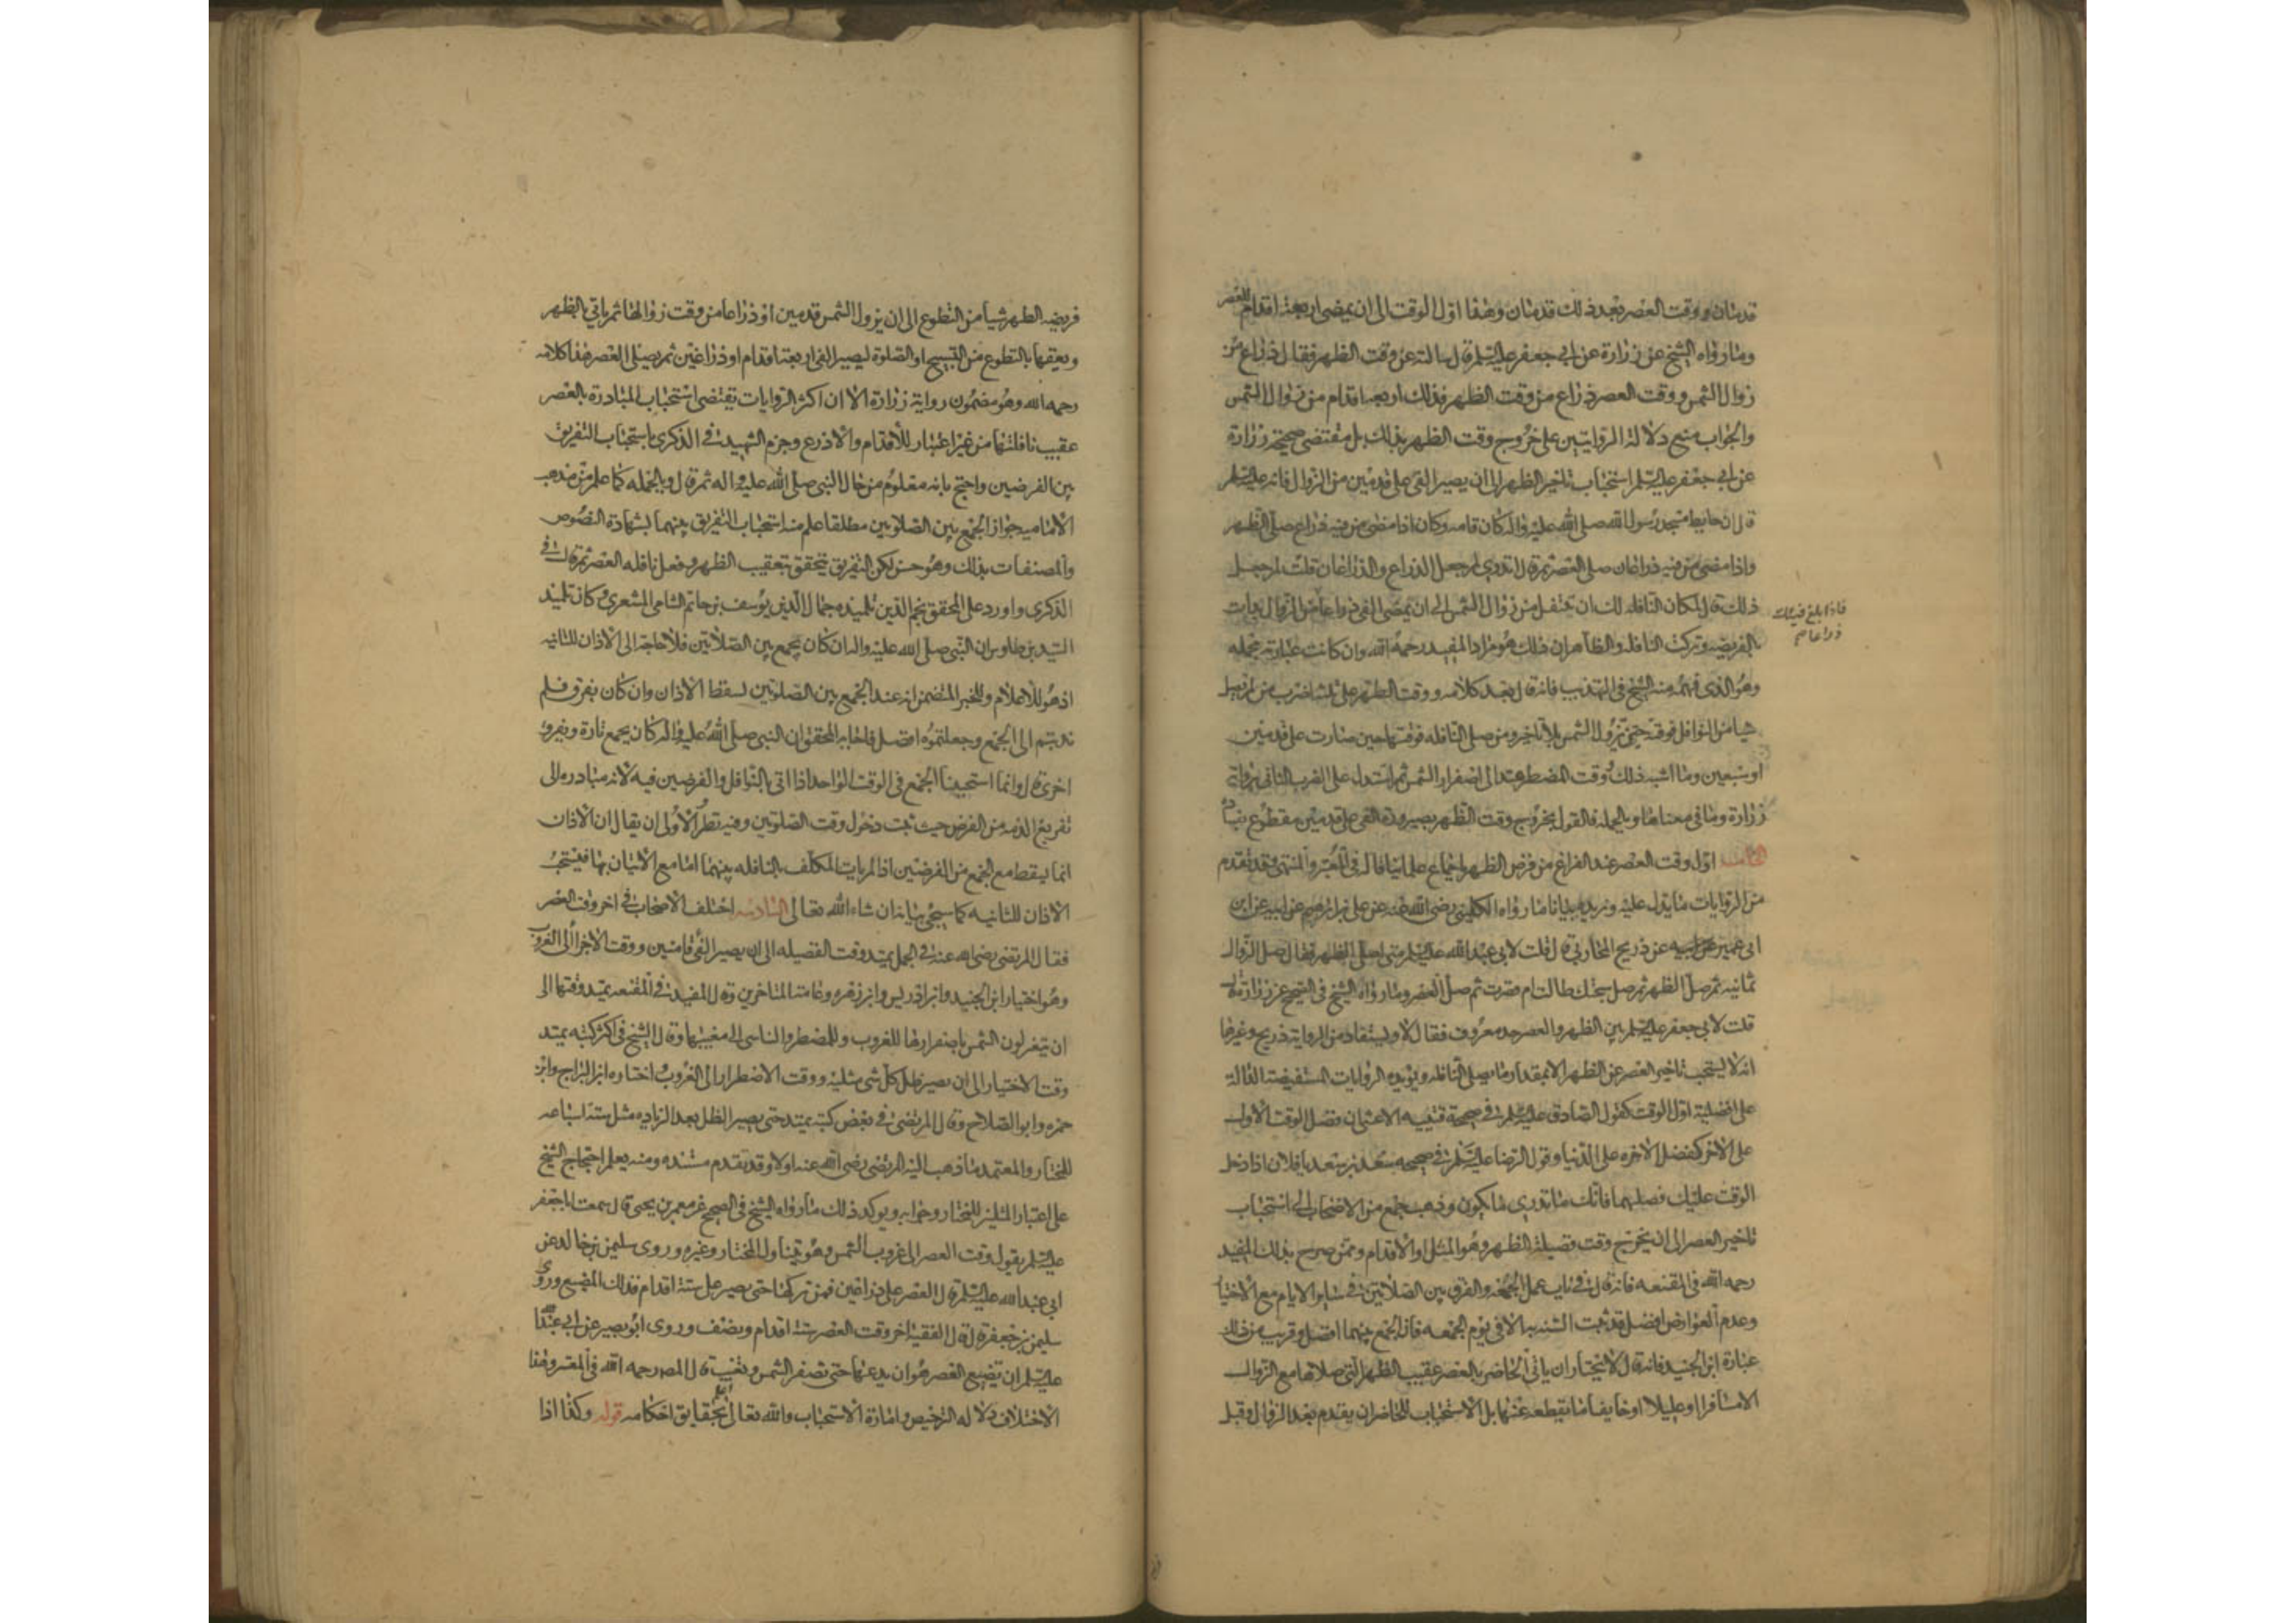 قدمان ووقت العصر بعد ذلك قدمان وهذا اول الوقت الى ان يمضى اربعة اقدام للعصر
وما رواه الشيخ عن زرارة عن ابي جعفر عليه السلم قال سالته عن وقت الظهر فقال ذراع من
زوال الشمس ووقت العصر ذراع من وقت الظهر فذلك اربعة اقدام من زوال الشمس
والجواب منع دلالة الروايتين على خروج وقت الظهر بذلك بل مقتضى صحيحة زرارة
عن ابي جعفر عليه السلم استحباب تاخير الظهر الى ان يصير الفئ على قدمين من الزوال فانه عليه السلم
قال ان حايط مسجد رسول الله صلى الله عليه واله كان قامه وكان اذا مضى من فيه ذراع صلى الظهر
واذا مضى من فيه ذراعان صلى العصر ثم قال اتدرى لم جعل الذراع والذراعان قلت لم جعل
ذلك قال لمكان النافله لك ان تتنفل من زوال الشمس الى ان يمضى الفئ ذراعا من الزوال بدات
فاذا بلغ فيئك
ذراعا صح
بالفريضه وتركت النافله والظاهر ان ذلك هو مراد المفيد رحمه الله وان كانت عبارته مجمله
وهو الذى فهمه منه الشيخ في التهذيب فانه قال بعد كلامه ووقت الظهر على ثلثة اضرب من لم يصل
شيا من النوافل فوقته حين تزول الشمس بلا تاخير ومن صلى النافله فوقتها حين صارت على قدمين
او سبعين وما اشبه ذلك ووقت المضطر يمتد الى اصفرار الشمس ثم استدل على الضرب الثاني برواية
زرارة وما في معناها وبالجمله فالقول بخروج وقت الظهر بصيرورة الفئ على قدمين مقطوع بفساده
الخامسه اول وقت العصر عند الفراغ من فرض الظهر باجماع علمائنا قاله في المعتبر والمنتهى وقد تقدم
من الروايات ما يدل عليه ونزيده بيانا ما رواه الكليني رضى الله عنه عن على بن ابراهيم عن ابيه عن ابن
ابى عمير عن ذريح المحاربى قال قلت لابى عبد الله عليه السلم متى اصلى الظهر فقال صل الزوال
ثمانيه ثم صل الظهر ثم صل سبحتك طالت ام قصرت ثم صل العصر وما رواه الشيخ في الصحيح عن زرارة قال
قلت لابى جعفر عليه السلم بين الظهر والعصر حد معروف فقال لا ويستفاد من الرواية ذريح وغيرها
انه لا يستحب تاخير العصر عن الظهر الا بمقدار ما يصلى النافله ويؤيده الروايات المستفيضه الدالة
على افضلية اول الوقت كقول الصادق عليه السلم في صحيحة قتيبه الاعشى ان فضل الوقت الاول
على الاخر كفضل الاخره على الدنيا وقول الرضا عليه السلم في صحيحه سعد بن سعد يا فلان اذا دخل
الوقت عليك فصلهما فانك ما تدرى ما يكون وذهب جمع من الاصحاب الى استحباب
تاخير العصر الى ان يخرج وقت فضيلة الظهر وهو المثل او الاقدام وممن صرح بذلك المفيد
رحمه الله في المقنعه فانه قال في باب عمل الجمعه والفرق بين الصلاتين في ساير الايام مع الاختيار
وعدم العوارض افضل قد ثبت السنه به الا في يوم الجمعه فان الجمع بينهما افضل وقريب من ذلك
عبارة ابن الجنيد فانه قال لا نختار ان ياتى الحاضر بالعصر عقيب الظهر التى صلاها مع الزوال
الا مسافرا او عليلا او خايفا ما يقطعه عنها بل الاستحباب للحاضر ان يقدم بعد الزوال وقبل
فريضه الظهر شيا من التطوع الى ان يزول الشمس قدمين او ذراعا من وقت زوالها ثم ياتي بالظهر
ويعقبها بالتطوع من التسبيح او الصلوة ليصير الفئ اربعة اقدام او ذراعين ثم يصلى العصر هذا كلامه
رحمه الله وهو مضمون رواية زرارة الا ان اكثر الروايات تقتضى استحباب المبادرة بالعصر
عقيب نافلتها من غير اعتبار للاقدام والاذرع وجزم الشهيد في الذكرى باستحباب التفريق
بين الفرضين واحتج بانه معلوم من حال النبى صلى الله عليه واله ثم قال وبالجمله كما علم من مذهب
الاماميه جواز الجمع بين الصلوتين مطلقا علم منه استحباب التفريق بينهما بشهادة النصوص
والمصنفات بذلك وهو حسن لكن التفريق يتحقق بتعقيب الظهر وفعل نافله العصر ثم قال في
الذكرى واورد على المحقق نجم الدين تلميذه جمال الدين يوسف بن حاتم الشامى المشعرى وكان تلميذ
السيد بن طاوس ان النبى صلى الله عليه واله ان كان يجمع بين الصلاتين فلا حاجة الى الاذان للثانيه
اذ هو للاعلام وللخبر المتضمن انه عند الجمع بين الصلوتين يسقط الاذان وان كان يفرق فلم
ندبتم الى الجمع وجعلتموه افضل فاجابه المحقق ان النبى صلى الله عليه واله كان يجمع تارة ويفرق
اخرى قال وانما استحببنا الجمع في الوقت الواحد اذا اتى بالنوافل والفرضين فيه لانه مبادرة الى
تفريغ الذمه من الفرض حيث ثبت دخول وقت الصلوتين وفيه نظر الاولى ان يقال ان الاذان
انما يسقط مع الجمع من الفرضين اذا لم يات المكلف بالنافله بينهما اما مع الاتيان بها فيستحب
الاذان للثانيه كما سيجئ بيانه ان شاء الله تعالى السادسه اختلف الاصحاب في اخر وقت العصر
فقال المرتضى رضى الله عنه في الجمل يمتد وقت الفضيله الى ان يصير الفئ قامتين ووقت الاجزاء الى الغروب
وهو اختيار ابن الجنيد وابن ادريس وابن زهره وعامة المتاخرين وقال المفيد في المقنعه يمتد وقتها الى
ان يتغير لون الشمس باصفرارها للغروب وللمضطر والناسى الى مغيبها وقال الشيخ في اكثر كتبه يمتد
وقت الاختيار الى ان يصير ظل كل شى مثليه ووقت الاضطرار الى الغروب اختاره ابن البراج وابن
حمزه وابو الصلاح وقال المرتضى في بعض كتبه يمتد حتى يصير الظل بعد الزياده مثل ستة اسباعه
للمختار والمعتمد ما ذهب اليه المرتضى رضى الله عنه اولا وقد تقدم مستنده ومنه يعلم احتجاج الشيخ
على اعتبار المثلين للمختار وجوابه ويوكد ذلك ما رواه الشيخ في الصحيح عن معمر بن يحيى قال سمعت ابا جعفر
عليه السلم يقول وقت العصر الى غروب الشمس وهو يتناول المختار وغيره وروى سليمن بن خالد عن
ابى عبد الله عليه السلم قال العصر على ذراعين فمن تركها حتى يصير على ستة اقدام فذلك المضيع وروى
سليمن بن جعفر قال قال الفقيه اخر وقت العصر ستة اقدام ونصف وروى ابو بصير عن ابي عبد الله
عليه السلم ان تضييع العصر هو ان يدعها حتى تصفر الشمس وتغيب قال المصر رحمه الله في المعتبر وهذا
الاختلاف دلاله الترخيص وامارة الاستحباب والله تعالى اعلم بحقايق احكامه قوله وكذا اذا